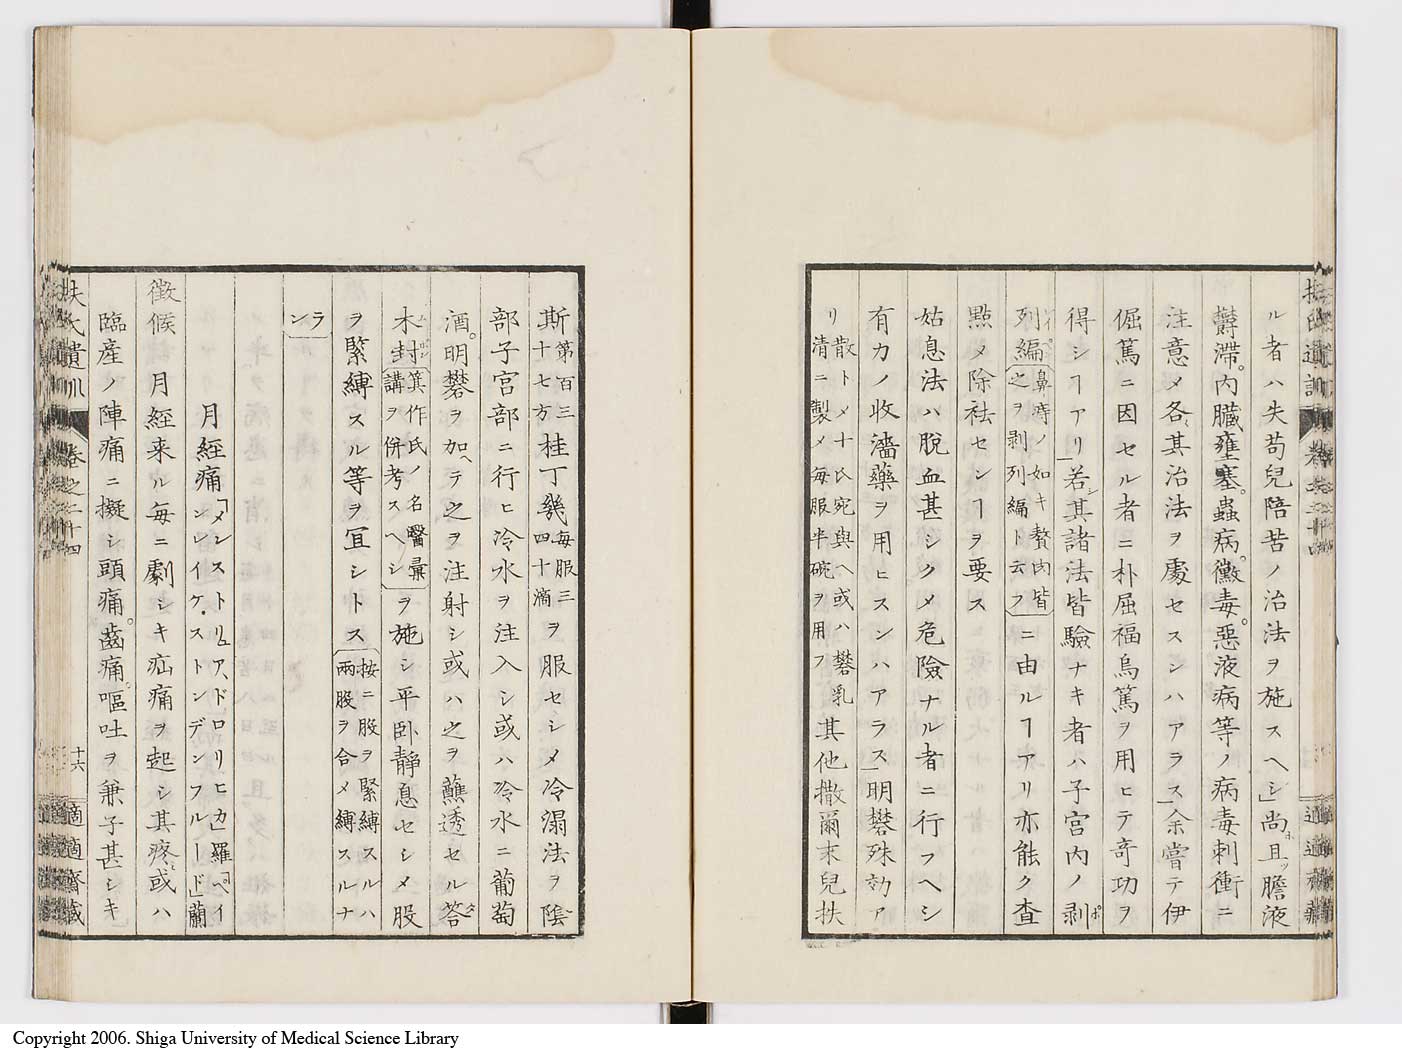 ル者ハ失苟兒陪苦ノ治法ヲ施スヘシ」尚且ッ膽液
欝滯。内臓壅塞。蟲病。黴毒。惡液病等ノ病毒刺衝ニ
注意メ各〻其治法ヲ處セスンハアラス」余嘗テ伊
倔篤ニ因セル者ニ朴屈福烏篤ヲ用ヒテ奇功ヲ
得シヿアリ」若シ其諸法皆驗ナキ者ハ子宮内ノ剥
列編鼻痔ノ如キ贅肉皆之ヲ剥列編ト云フニ由ルヿアリ亦能ク査
點メ除袪センヿヲ要ス
姑息法ハ脱血甚シクメ危險ナル者ニ行フヘシ
有力ノ收濇藥ヲ用ヒスンハアラス」明礬殊効ア
リ散トメ十氏宛與ヘ或ハ礬乳清ニ製メ毎服半碗ヲ用フ其他撒爾末兒扶
斯第百三十七方桂丁幾毎服三四十滴ヲ服セシメ冷溻法ヲ陰
部子宮部ニ行ヒ冷水ヲ注入シ或ハ冷水ニ葡萄
酒。明礬ヲ加ヘテ之ヲ注射シ或ハ之ヲ蘸透セル答
木封箕作氏ノ名醫彙講ヲ併考スヘシヲ施シ平臥靜息セシメ股
ヲ緊縛スル等ヲ宜シトス按ニ股ヲ緊縛スルハ兩股ヲ合メ縛スルナ
ラン
月經痛「メンストリュア、ドロリヒカ」羅「ペインレイケ・ストンデンフルード」蘭
徴候 月經来ル毎ニ劇シキ疝痛ヲ起シ其疼或ハ
臨産ノ陣痛ニ擬シ頭痛。齒痛。嘔吐ヲ兼子甚シキ
扶氏遺訓 卷之二十四
十六 適適齋藏